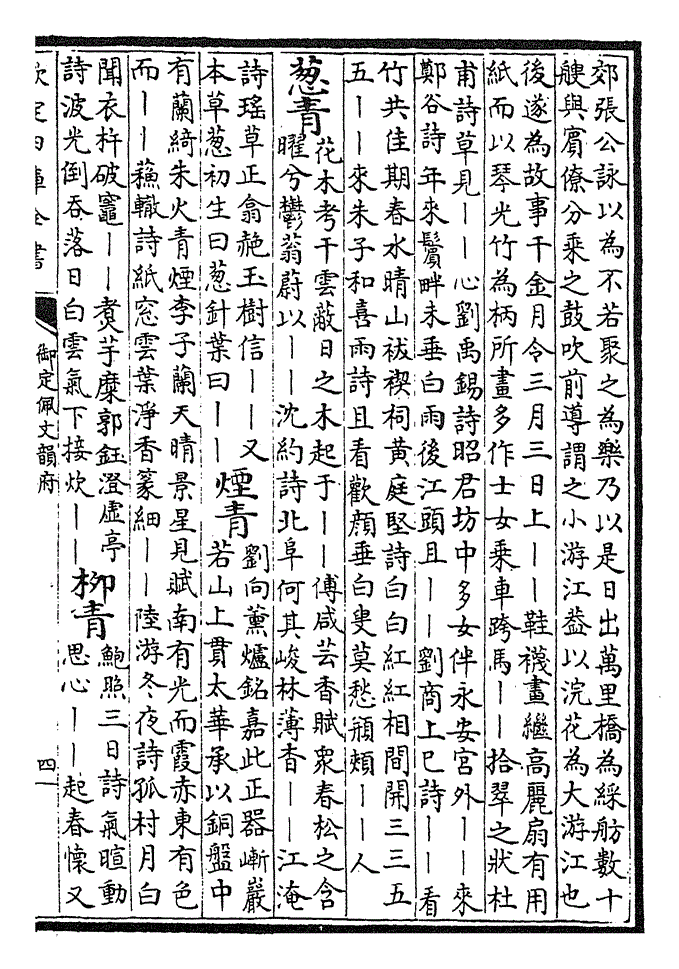 郊張公詠以為不若聚之為樂乃以是日出萬里橋為綵舫數十
艘與賓僚分乘之鼓吹前導謂之小游江葢以浣花為大游江也
後遂為故事千金月令三月三日上丨丨鞋襪畫繼高麗扇有用
紙而以琴光竹為柄所畫多作士女乘車跨馬丨丨拾翠之狀杜
甫詩草見丨丨心劉禹錫詩昭君坊中多女伴永安宫外丨丨來
鄭谷詩年來鬢畔未垂白雨後江頭且丨丨劉商上巳詩丨丨看
竹共佳期春水晴山祓禊祠黄庭堅詩白白紅紅相間開三三五
五丨丨來朱子和喜雨詩且看歡顔垂白叟莫愁頳頰丨丨人
葱青
花木考干雲蔽日之木起于丨丨傅咸芸香賦衆春松之含
曜兮鬱蓊蔚以丨丨沈約詩北阜何其峻林薄杳丨丨江淹
詩瑶草正翕赩玉樹信丨丨又
本草葱初生曰葱針葉曰丨丨
煙青
劉向薰爐銘嘉此正器嶄巖
若山上貫太華承以銅盤中
有蘭綺朱火青煙李子蘭天晴景星見賦南有光而霞赤東有色
而丨丨蘓轍詩紙窓雲葉淨香篆細丨丨陸游冬夜詩孤村月白
聞衣杵破竈丨丨煑芋糜郭鈺澄虚亭
詩波光倒吞落日白雲氣下接炊丨丨
柳青
鮑照三日詩氣暄動
思心丨丨起春懷又
欽定四庫全書
御定佩文韻府
四一